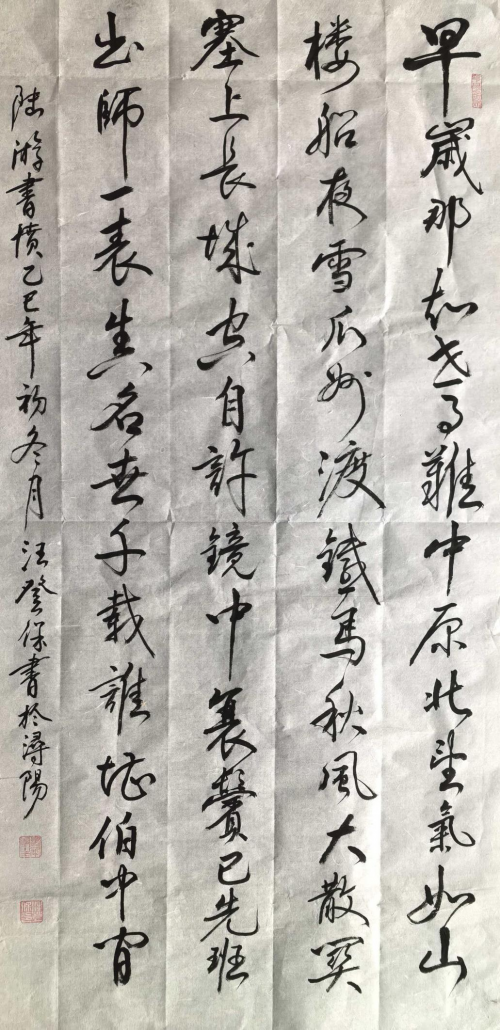 早歲那知世事難中原北望氣如山
楼船夜雪瓜州渡鐵馬秋風大散関
塞上長城空自許鏡中衰鬢已先班
出師一表真名世千載誰堪伯仲间
陆游書愤乙巳年初冬月汪登保書於潯陽